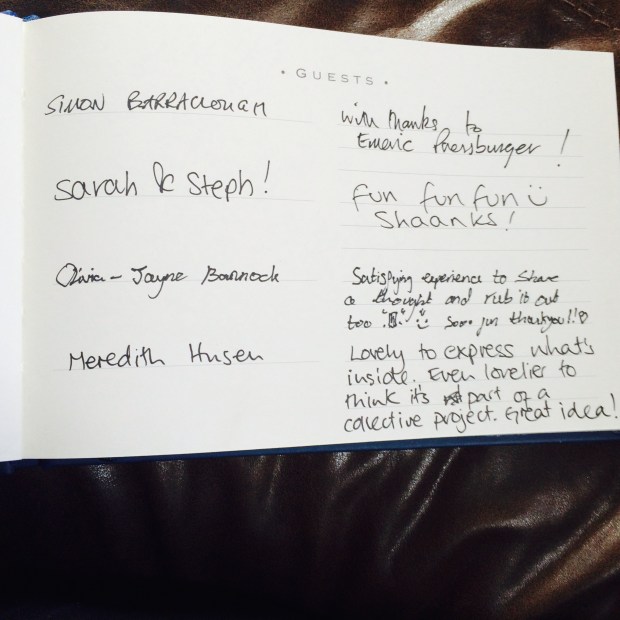 • GUESTS •
SIMON BARRACLOUGH
with thanks to
Emeric Pressburger!
Sarah & Steph!
Fun fun fun
Shaanks!
Olivia-Jayne
Satisfying experience to share
a thought and rub it out
too thankyou!!
Meredith
Lovely to express what's
inside. Even lovelier to
think it's part of a
collective project. Great idea!